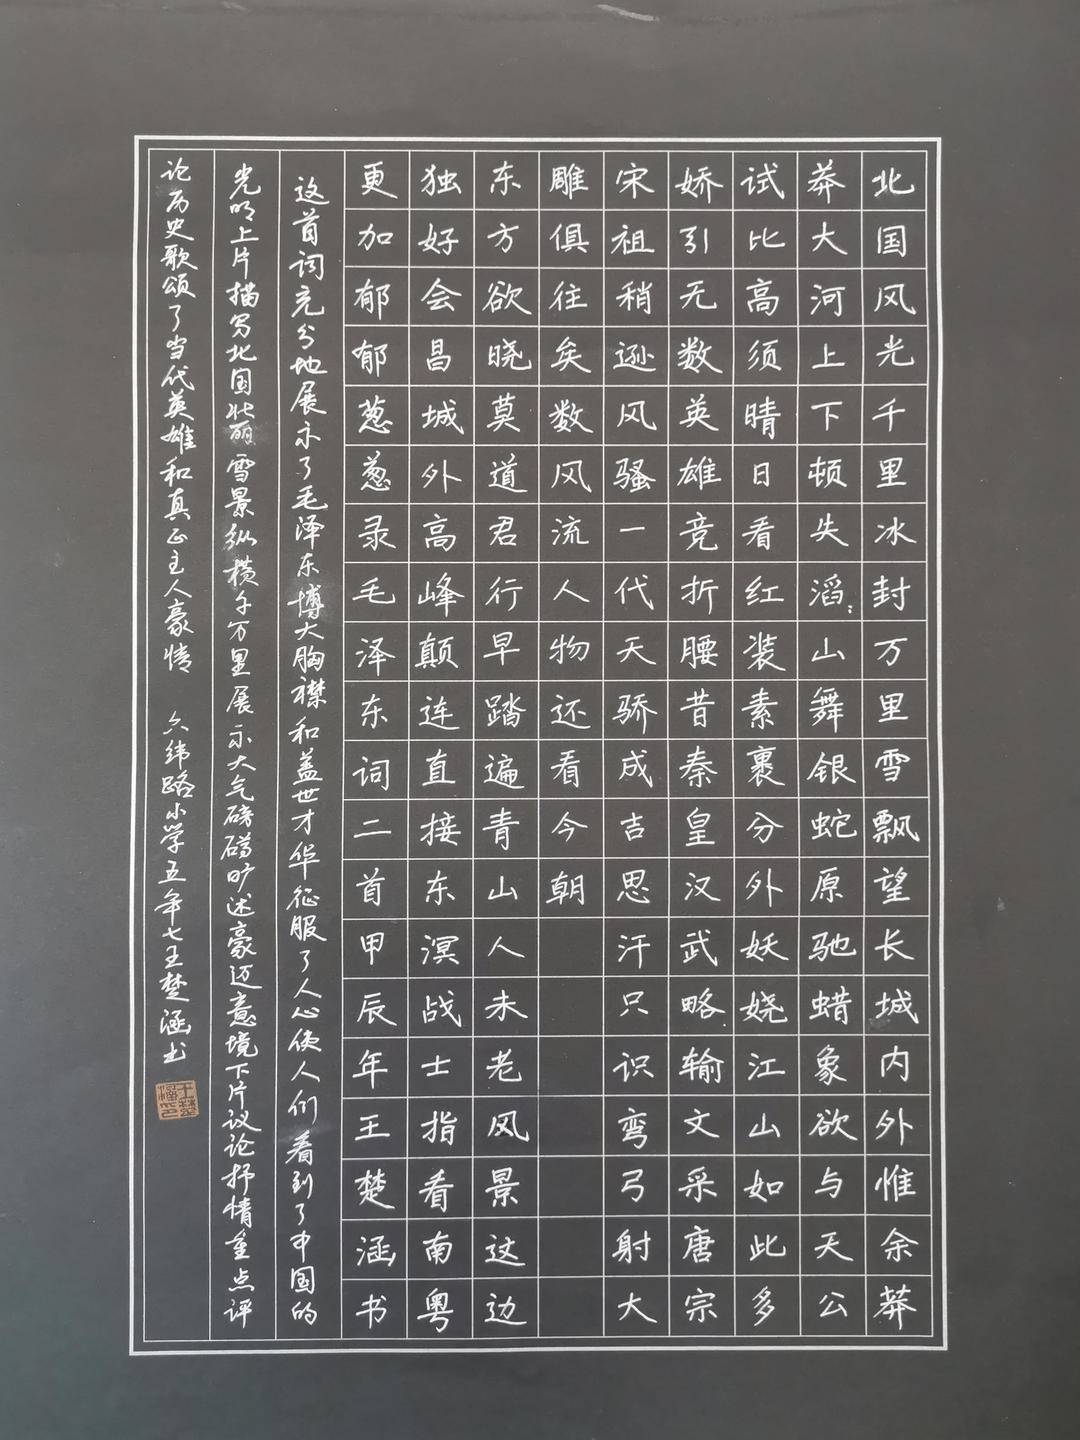 北国风光千里冰封万里雪飘望长城内外惟余莽
莽大河上下顿失滔：山舞银蛇原驰蜡象欲与天公
试比高须晴日看红装素裹分外妖娆江山如此多
娇引无数英雄竞折腰昔秦皇汉武略输文采唐宗
宋祖稍逊风骚一代天骄成吉思汗只识弯弓射大
雕俱往矣数风流人物还看今朝
东方欲晓莫道君行早踏遍青山人未老风景这边
独好会昌城外高峰颠连直接东溟战士指看南粤
更加郁郁葱葱录毛泽东词二首甲辰年王楚涵书
这首词充分地展示了毛泽东博大胸襟和盖世才华征服了人心使人们看到了中国的
光明上片描写北国壮丽雪景纵横千万里展示大气磅礴旷达豪迈意境下片议论抒情重点评
论历史歌颂了当代英雄和真正主人豪情 六纬路小学五年七王楚涵书